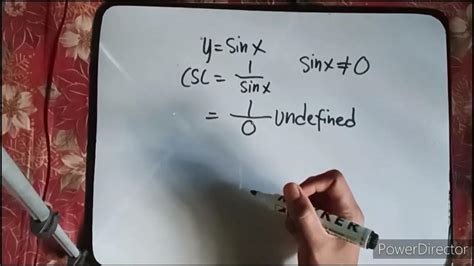 y = sinx
csc = 1/sinx sinx ≠ 0
= 1/0 undefined
MARKER
PowerDirector